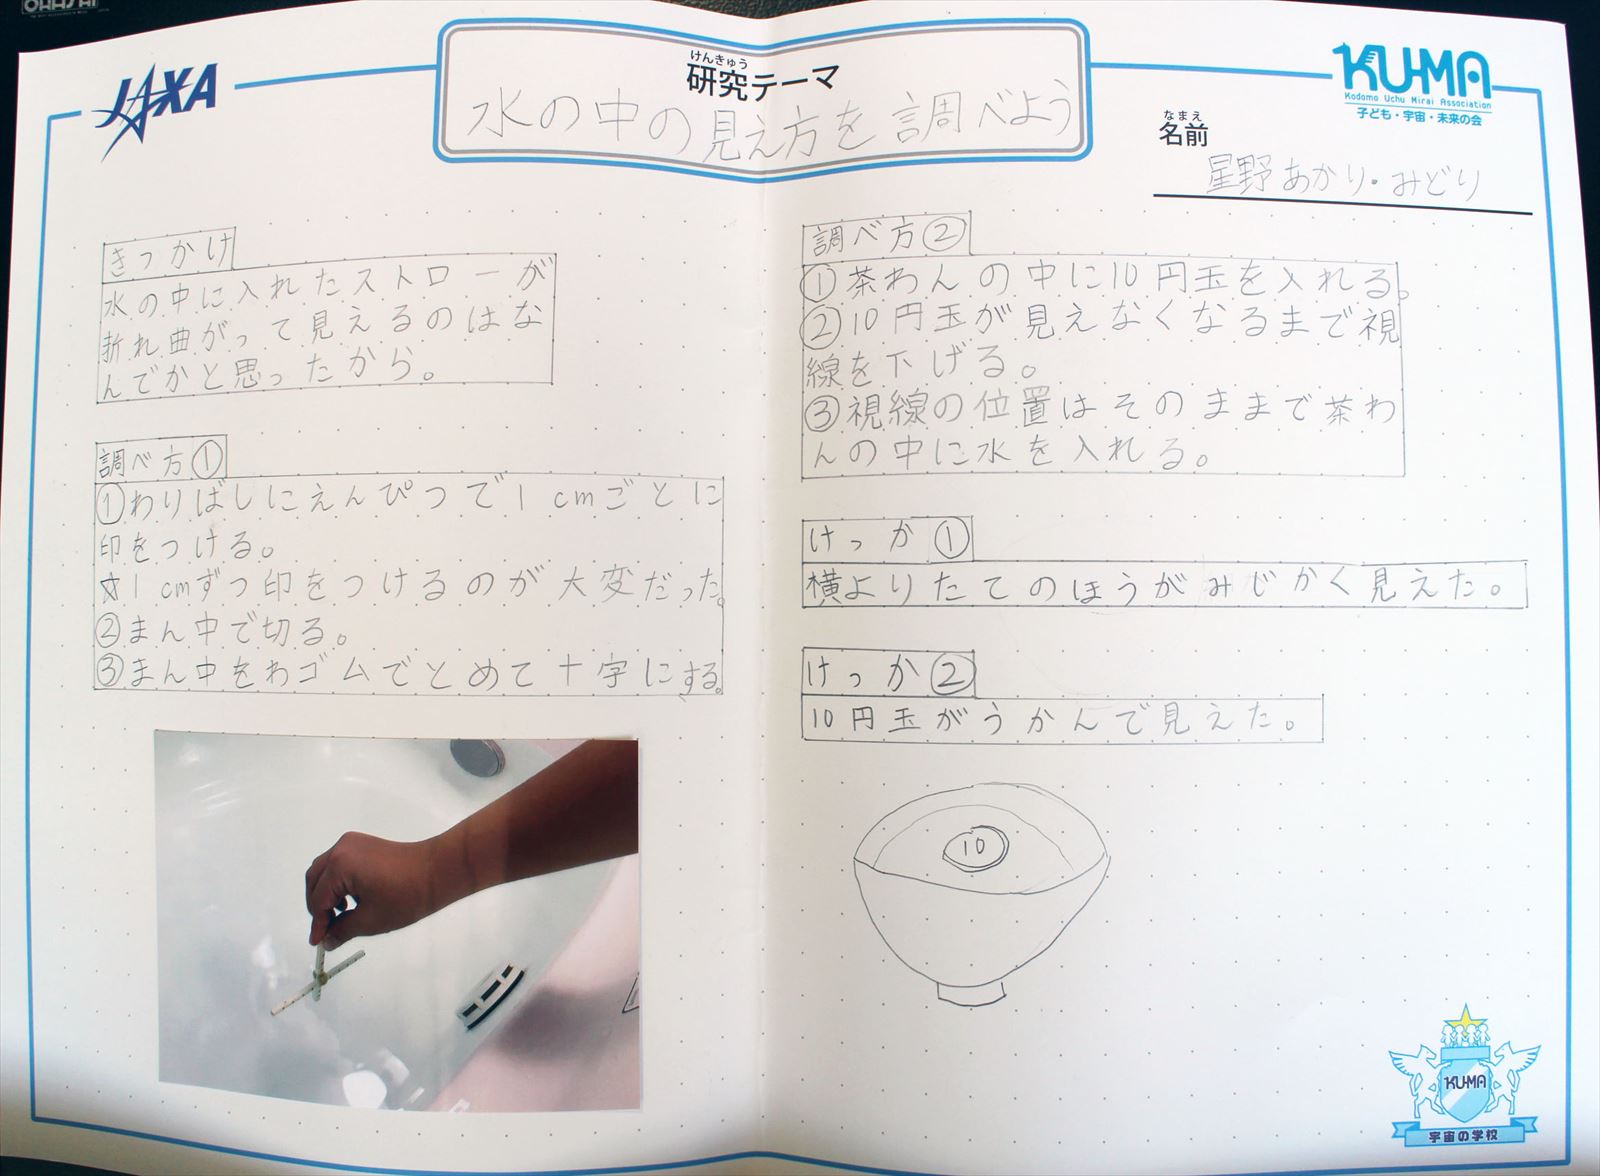 JAXA
けんきゅう
研究テーマ
水の中の見え方を調べよう
KU-MA
Kodomo Uchu Mirai Association
子ども・宇宙・未来の会
なまえ
名前
星野あかり・みどり
きっかけ
水の中に入れたストローが
折れ曲がって見えるのはな
んでかと思ったから。
調べ方①
①わりばしにえんぴつで1cmごとに
印をつける。
☆1cmずつ印をつけるのが大変だった。
②まん中で切る。
③まん中をわゴムでとめて十字にする。
調べ方②
①茶わんの中に10円玉を入れる。
②10円玉が見えなくなるまで視
線を下げる。
③視線の位置はそのままで茶わ
んの中に水を入れる。
けっか①
横よりたてのほうがみじかく見えた。
けっか②
10円玉がうかんで見えた。
10
KU-MA
宇宙の学校